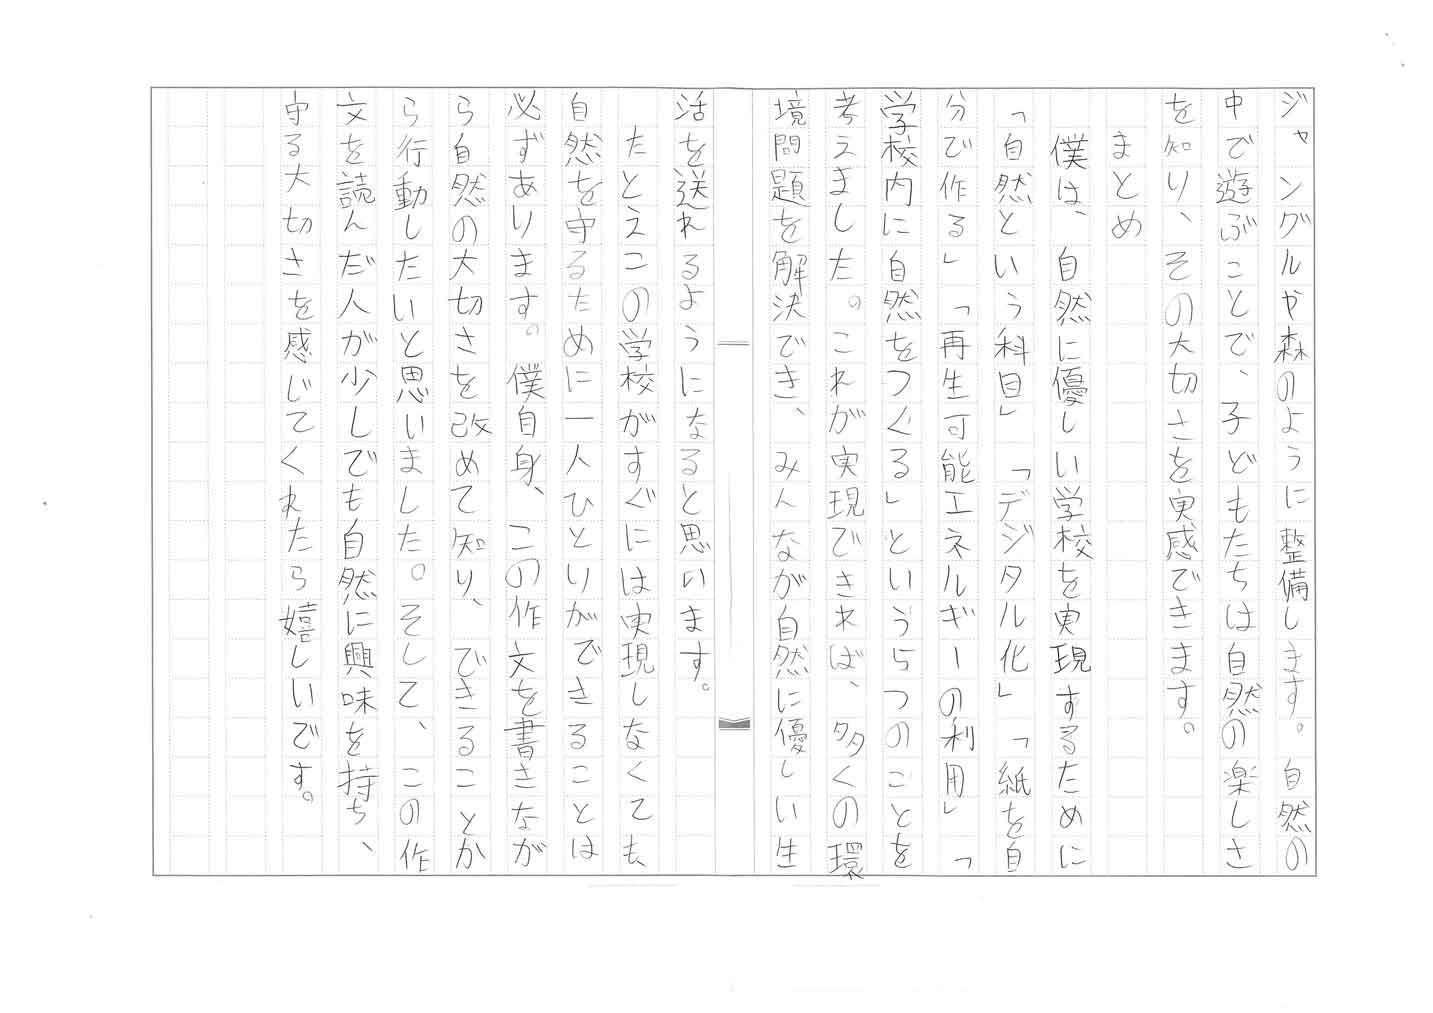 ジャングルや森のように整備します。自然の
中で遊ぶことで、子どもたちは自然の楽しさ
を知り、その大切さを実感できます。
まとめ
僕は、自然に優しい学校を実現するために
「自然という科目」「デジタル化」「紙を自
分で作る」「再生可能エネルギーの利用」「
学校内に自然をつくる」という5つのことを
考えました。これが実現できれば、多くの環
境問題を解決でき、みんなが自然に優しい生
活を送れるようになると思います。
たとえこの学校がすぐには実現しなくても、
自然を守るために一人ひとりができることは
必ずあります。僕自身、この作文を書きなが
ら自然の大切さを改めて知り、できることか
ら行動したいと思いました。そして、この作
文を読んだ人が少しでも自然に興味を持ち、
守る大切さを感じてくれたら嬉しいです。